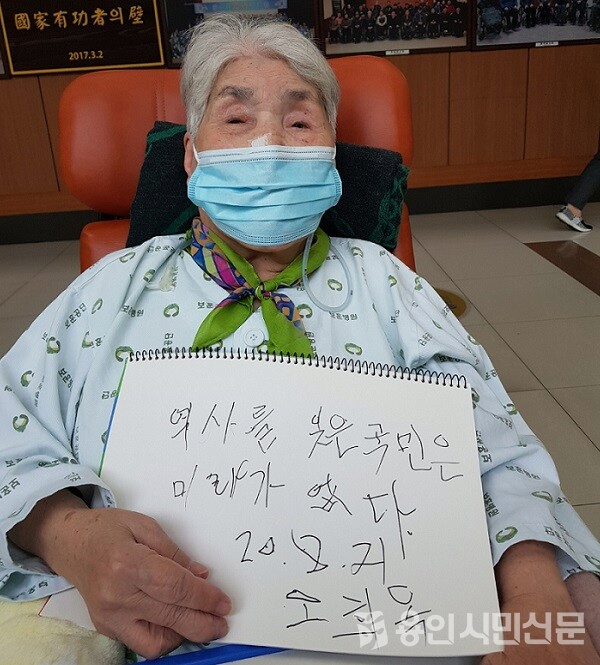 國家有功者의 壁
2017.3.2
보훈공단
보훈병원
역사를 잊은 국민은
미래가 없다.
20.8.21
오희옥
용인시민신문